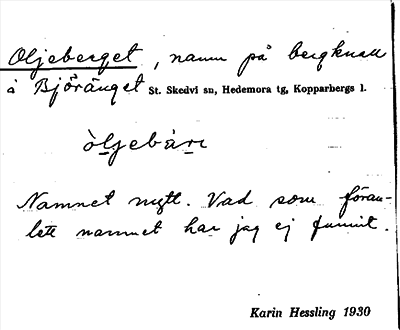 Oljeberget, namn på bergknall
å Björänget St. Skedvi sn, Hedemora tg, Kopparbergs l.
òljebàrı
Namnet nytt. Vad som föran-
lett namnet har jag ej funnit.
Karin Hessling 1930